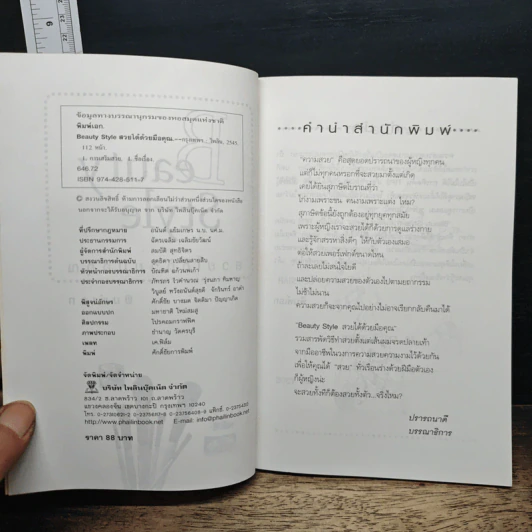 9
ข้อมูลทางบรรณานุกรมของหอสมุดแห่งชาติ
พิมพ์เอก.
Beauty Style สวยได้ด้วยมือคุณ.--กรุงเทพฯ : ไพลิน, 2545.
112 หน้า.
1. การเสริมสวย. I. ชื่อเรื่อง.
646.72
ISBN 974-428-511-7
© สงวนลิขสิทธิ์ ห้ามการลอกเลียนไม่ว่าส่วนหนึ่งส่วนใดของหนังสือ
นอกจากจะได้รับอนุญาต จาก บริษัท ไพลินบุ๊คเน็ต จำกัด
ที่ปรึกษากฎหมาย
ประธานกรรมการ ฉัตรเฉลิม เฉลิมชัยวัฒน์
ผู้จัดการสำนักพิมพ์ สมบัติ สุทธิจิตร
บรรณาธิการต้นฉบับ
หัวหน้ากองบรรณาธิการ บัณฑิต แก้วนพเก้า
ประจำกองบรรณาธิการ
พิสูจน์อักษร
ออกแบบปก มหาชาติ ใหม่สมสู
ศิลปกรรม โปรคอมกราฟฟิค
ภาพประกอบ ชำนาญ วัดครบุรี
เพลท เค.ฟิล์ม
พิมพ์ ศักดิ์ชัยการพิมพ์
จัดพิมพ์/จัดจำหน่าย
บริษัท ไพลินบุ๊คเน็ต จำกัด
834/2 ส.ลาดพร้าว ถ.ลาดพร้าว
แขวงคลองจั่น เขตบางกะปิ กรุงเทพฯ 10240
http://www.phailinbook.net E-mail: info@phailinbook.net
ราคา 88 บาท
คำนำสำนักพิมพ์
"ความสวย" คือสุดยอดปรารถนาของผู้หญิงทุกคน
แต่ก็ไม่ทุกคนหรอกที่จะสวยมาตั้งแต่เกิด
เคยได้ยินสุภาษิตโบราณที่ว่า
ไก่งามเพราะขน คนงามเพราะแต่ง ไหม?
สุภาษิตข้อนี้ยังถูกต้องอยู่ทุกยุคทุกสมัย
เพราะผู้หญิงเราจะสวยได้ก็ด้วยการดูแลร่างกาย
และรู้จักสรรหาสิ่งดีๆ ให้กับตัวเองเสมอ
ต่อให้สวยพอร์เฟคท์ขนาดไหน
ถ้าละเลยไม่สนใจไยดี
และปล่อยความสวยของตัวเองไปตามยถากรรม
ไม่ช้าไม่นาน
ความสวยก็จะจากคุณไปอย่างไม่อาจเรียกกลับคืนมาได้
"Beauty Style สวยได้ด้วยมือคุณ"
รวมสารพัดวิธีทำสวยตั้งแต่เส้นผมจรดปลายเท้า
จากมืออาชีพในวงการความสวยความงามไว้ด้วยกัน
เพื่อให้คุณได้ "สวย" ทั่วเรือนร่างด้วยฝีมือตัวเอง
ก็ผู้หญิงน่ะ
จะสวยทั้งทีก็ต้องสวยทั้งตัว...จริงไหม?
ปรารถนาดี
บรรณาธิการ